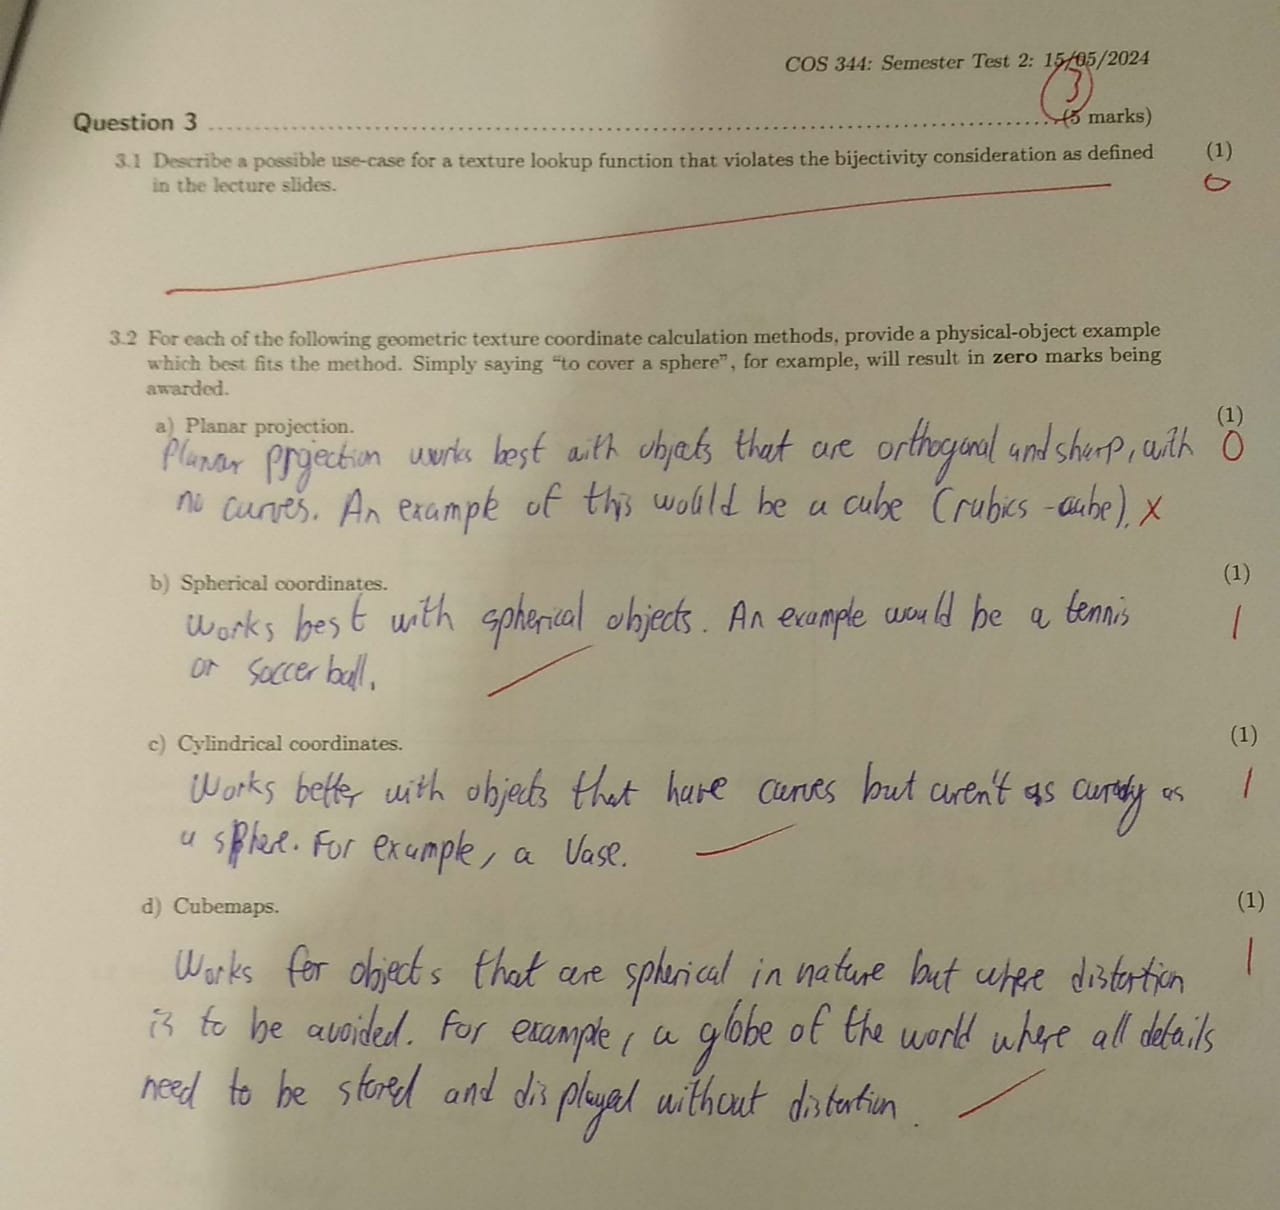 COS 344: Semester Test 2: 15/05/2024
3
Question 3 (5 marks)
3.1 Describe a possible use-case for a texture lookup function that violates the bijectivity consideration as defined (1)
in the lecture slides. 0
3.2 For each of the following geometric texture coordinate calculation methods, provide a physical-object example
which best fits the method. Simply saying “to cover a sphere”, for example, will result in zero marks being
awarded.
a) Planar projection. (1)
Planar projection works best with objects that are orthogonal and sharp, with 0
no curves. An example of this would be a cube (rubics -cube). X
b) Spherical coordinates. (1)
Works best with spherical objects. An example would be a tennis 1
or soccer ball.
c) Cylindrical coordinates. (1)
Works better with objects that have curves but aren't as curvy as 1
a sphere. For example, a Vase.
d) Cubemaps. (1)
Works for objects that are spherical in nature but where distortion 1
is to be avoided. For example, a globe of the world where all details
need to be stored and displayed without distortion.